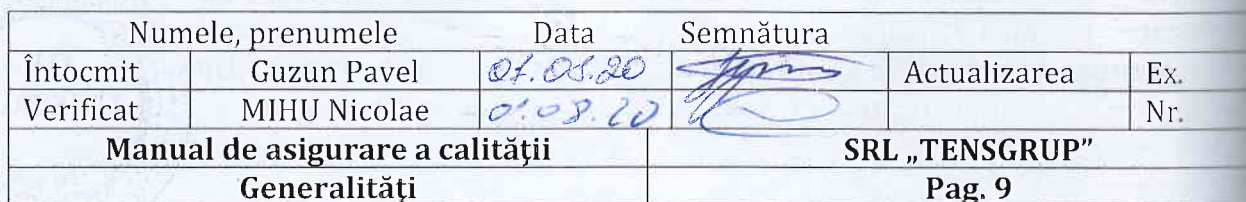 Numele, prenumele Data Semnătura
Întocmit Guzun Pavel Actualizarea Ex.
Verificat MIHU Nicolae Nr.
Manual de asigurare a calității SRL „TENSGRUP”
Generalități Pag. 9